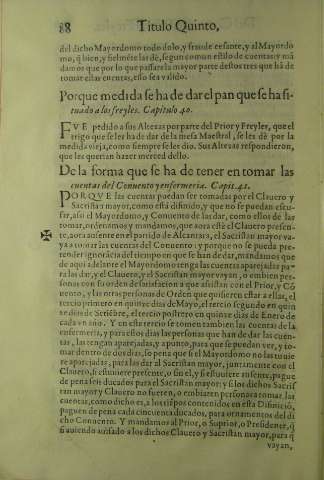 88 Titulo Quinto,
del dicho Mayordomo todo dolo, y fraude cesante, y al Mayordo
mo, q̃ bien, y fielmẽte las dè, segun como estilo de cuentas: y mã
damos que por lo que passare la mayor parte destos tres que hã de
tomar estas cuentas, esso sea valido.
Porque medida se ha de dar el pan que se ha si-
tuado a los freyles. Capitulo 40.
FVE pedido a sus Altezas por parte del Prior y Freyles, que el
trigo que se les ha de dar de la mesa Maestral, se les dè por la
medida vieja, como siempre se les dio. Sus Altezas respondieron,
que les querian hazer merced dello.
De la forma que se ha de tener en tomar las
cuentas del Conuento y enfermeria. Capit. 41.
PORQVE las cuentas puedan ser tomadas por el Clauero y
Sacristan mayor, como està difinido, y que no se puedan escu-
sar, assi el Mayordomo, y Conuento de las dar, como ellos de las
tomar, ordenamos y mandamos, que aora estè el Clauero presen-
te, aora ausente en el partido de Alcantara, el Sacristan mayor va-
ya a tomar las cuentas del Conuento: y porque no se pueda pre-
tender ignorãcia del tiempo en que se han de dar, mandamos que
de aqui adelante el Mayordomo tenga las cuentas aparejadas pa-
ra las dar, y el Clauero, y el Sacristan mayor vayan, o embien per-
sonas con su orden
cuentas, y las otras personas de Orden que quisieren estar a ellas, el
tercio primero en quinze dias de Mayo, el tercio segundo en quin
ze dias de Setiẽbre, el tercio postrero en quinze dias de Enero de
cada vn año. Y en este tercio se tomen tambien las cuentas de la
enfermeria, y para estos dias las personas que han de dar las cuen-
tas, las tengan aparejadas, y a punto, para que se puedan ver, y to-
mar dentro de dos dias, so pena que si el Mayordomo no las tuuie
re aparejadas, para las dar al Sacristan mayor, juntamente con el
Clauero, si estuuiere presente, o sin el, si estuuiere ausente, pague
de pena seis ducados para el Sacristan mayor: y si los dichos Sacris
tan mayor y Clauero no fueren, o embiaren personas a tomar las
cuentas, como dicho es, a los tiẽpos contenidos en esta Difinició,
paguen de pena cada cinquenta ducados, para ornamentos del di
cho Conuento. Y mandamos al Prior, o Suprior, o Presidente, q̃
si auiendo auisado a los dichos Clauero y Sacristan mayor, para q̃
vayan,